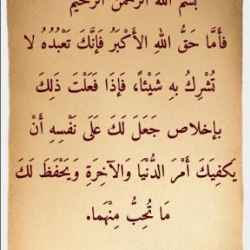 بسم الله الرحمن الرحيم
فَأَمَّا حَقُّ اللهِ الْأَكْبَرُ فَإِنَّكَ تَعْبُدُهُ لَا
تُشْرِكُ بِهِ شَيْئاً، فَإِذَا فَعَلْتَ ذَلِكَ
بِإِخلاصٍ جَعَلَ لَكَ عَلَى نَفْسِهِ أَنْ
يَكفِيَكَ أَمْرَ الدُّنْيَا وَالآخِرَةِ وَيَحْفَظَ لَكَ
مَا تُحِبُّ مِنْهَما.